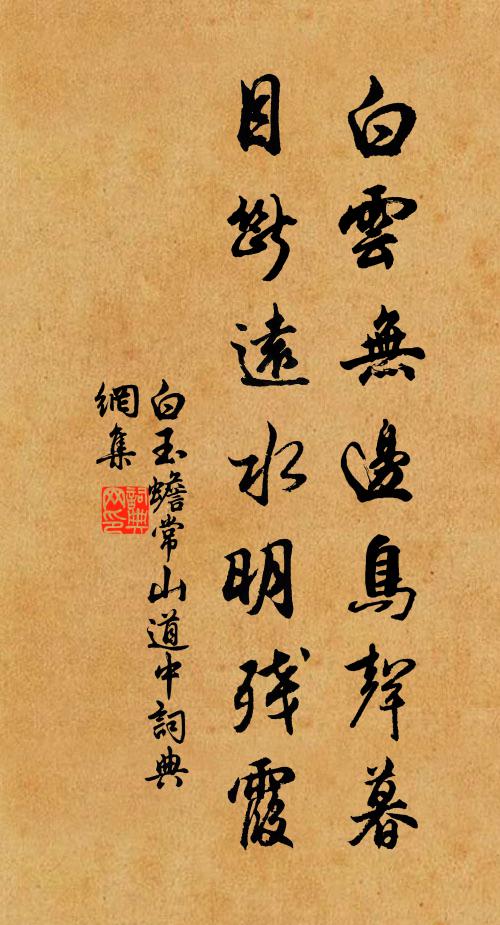 白雲無邊鳥聲暮
目斷遠水明残霞
白玉蟾常山道中詞典
網集
詞典網印